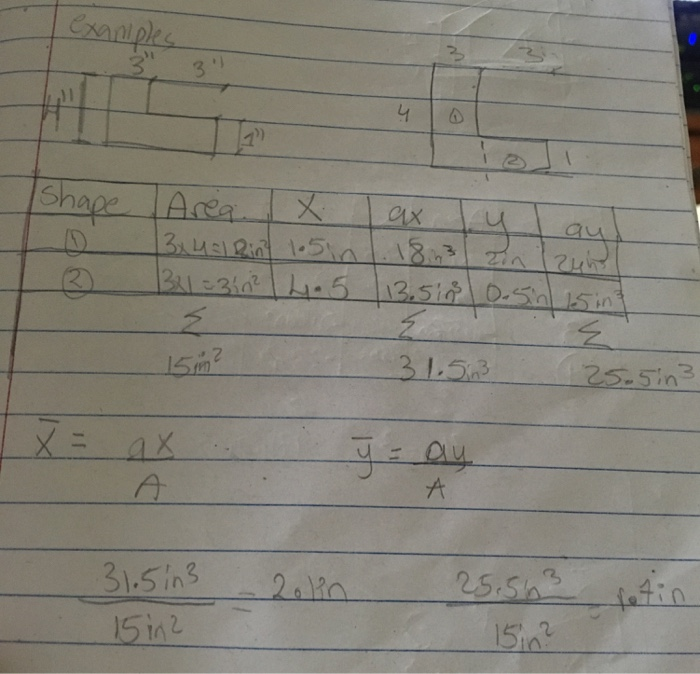 examples
3" 3"
3 3
4"
4 ①
1"
② 1
Shape Area X ax y ay
① 3x4=12in² 1.5in 18in³ 2in 24in³
② 3x1=3in² 4.5 13.5in³ 0.5in 1.5in³
Σ Σ Σ
15in² 31.5in³ 25.5in³
x̄ = ax ȳ = ay
A A
31.5in³ = 2.1in 25.5in³ = 1.7in
15in² 15in²